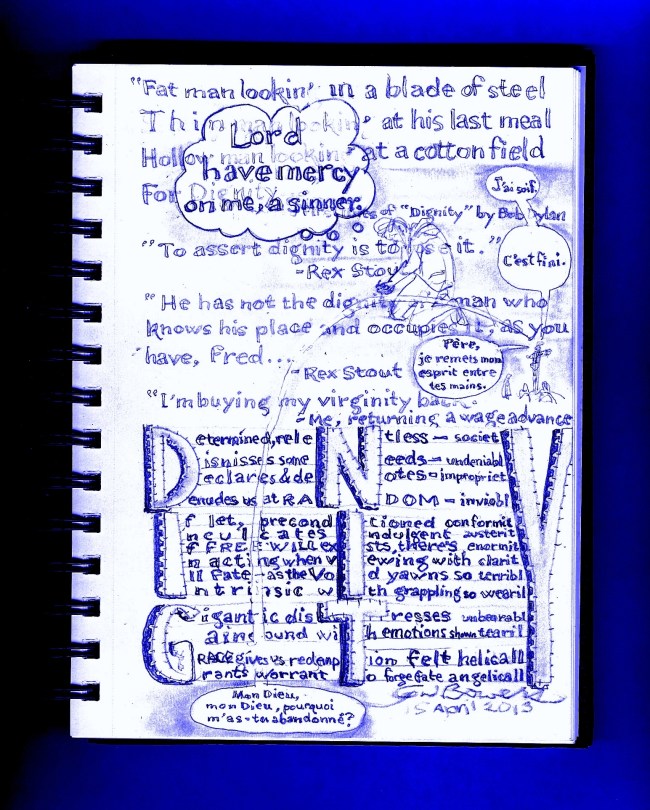 "Fat man lookin' in a blade of steel
Thin man lookin' at his last meal
Hollow man lookin' at a cotton field
For Dignity
Lord
have mercy
on me, a sinner.
of "Dignity" by Bob Dylan
J'ai soif.
C'est fini.
"To assert dignity is to lose it."
- Rex Stout
"He has not the dignity of a man who
knows his place and occupies it, as you
have, Fred...
- Rex Stout
Père,
je remets mon
esprit entre
tes mains.
"I'm buying my virginity back."
- Me, returning a wage advance
DIGNITY
Determined, rele Ntless — societY
Dismisses some Needs — undeniablY
Declares & de Notes — improprietY
Denudes us at RANDOM — inviolablY
If let, preconditioned conformitY
Inculcates indulgent austeritY
If FREE WILL exists, there's enormitY
In acting when viewing with claritY
Ill Fate — as the Void yawns so terriblY
Intrinsic with grappling so wearilY
Gigantic distresses unbearablY
Gaining bound with emotions shown tearilY
GRACE gives us redemption felt helicallY
Grants warrant to forge fate angelicallY
Mon Dieu,
mon Dieu, pourquoi
m'as-tu abandonné?
5 April 2013